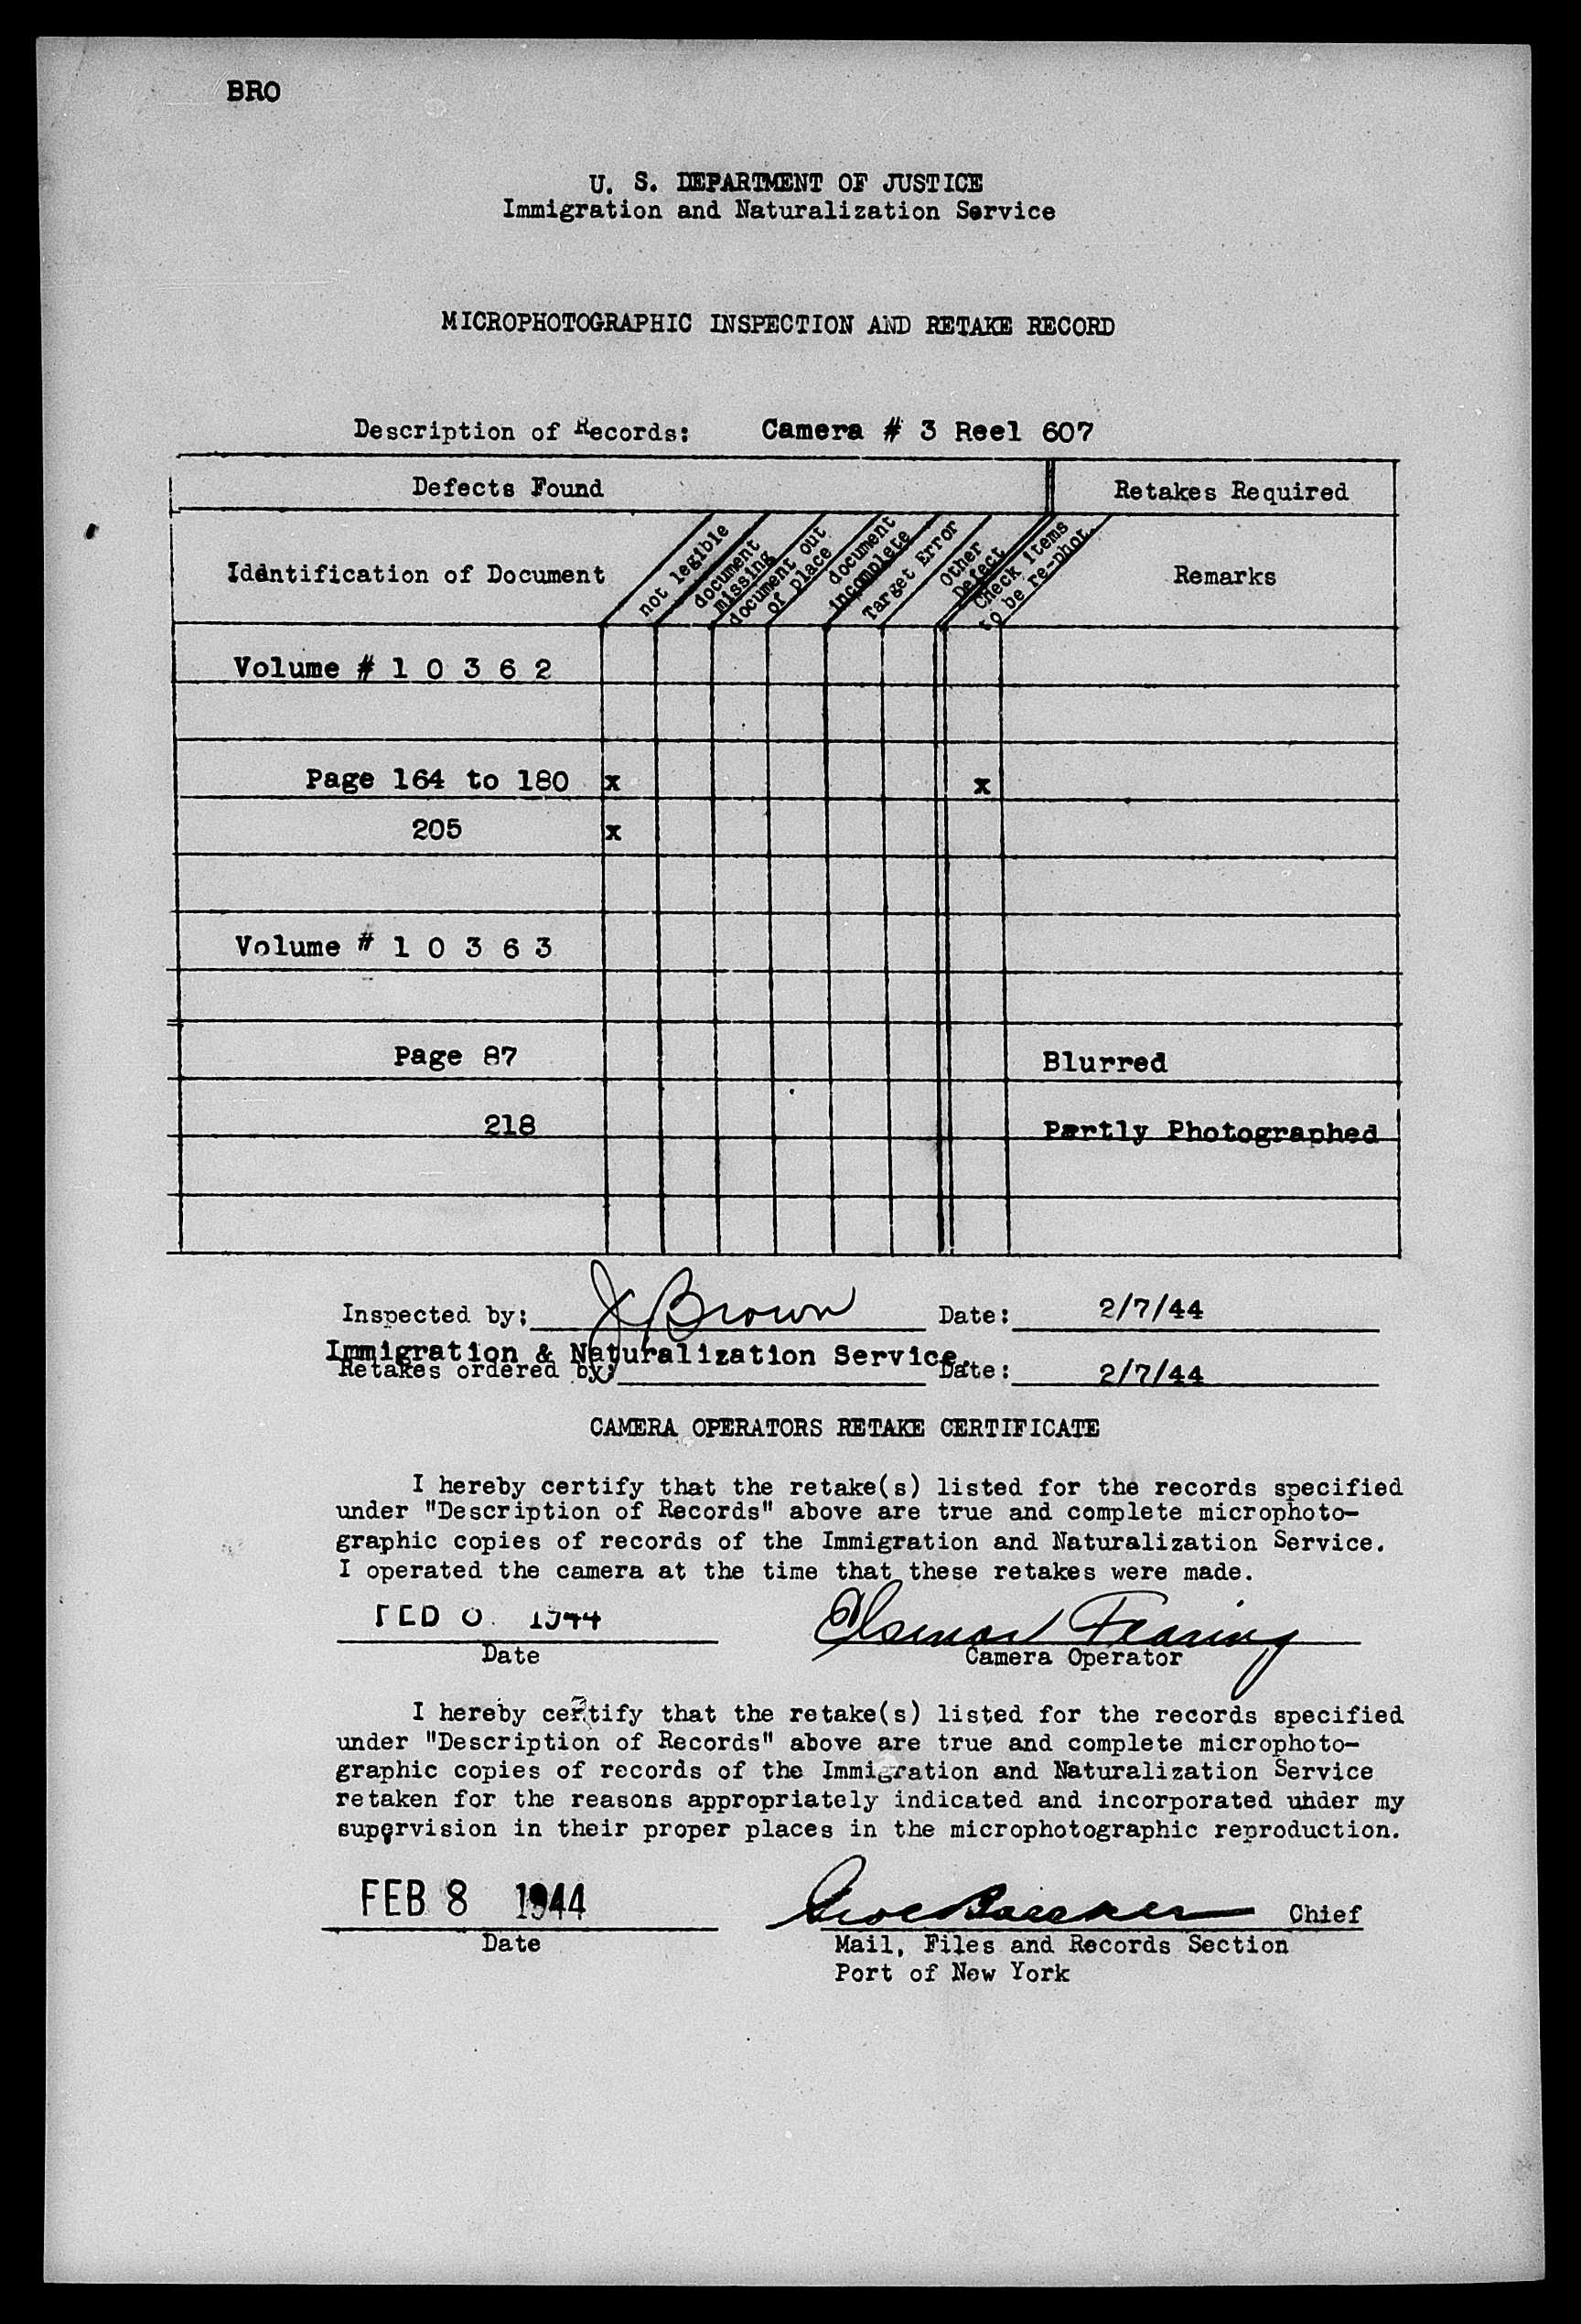 BRO
U. S. DEPARTMENT OF JUSTICE
Immigration and Naturalization Service
MICROPHOTOGRAPHIC INSPECTION AND RETAKE RECORD
Description of Records: Camera # 3 Reel 607
Defects Found
Retakes Required
Identification of Document
not legible
document missing
document out of place
document incomplete
Target Error
Other Defect
Check items to be re-phot.
Remarks
Volume # 1 0 3 6 2
Page 164 to 180 x x
205 x
Volume # 1 0 3 6 3
Page 87 Blurred
218 Partly Photographed
Inspected by: J Brown Date: 2/7/44
Immigration & Naturalization Service.
Retakes ordered by: Date: 2/7/44
CAMERA OPERATORS RETAKE CERTIFICATE
I hereby certify that the retake(s) listed for the records specified
under "Description of Records" above are true and complete microphoto-
graphic copies of records of the Immigration and Naturalization Service.
I operated the camera at the time that these retakes were made.
FEB 1944
Date
Fearing
Camera Operator
I hereby certify that the retake(s) listed for the records specified
under "Description of Records" above are true and complete microphoto-
graphic copies of records of the Immigration and Naturalization Service
retaken for the reasons appropriately indicated and incorporated under my
supervision in their proper places in the microphotographic reproduction.
FEB 8 1944
Date
Chief
Mail, Files and Records Section
Port of New York